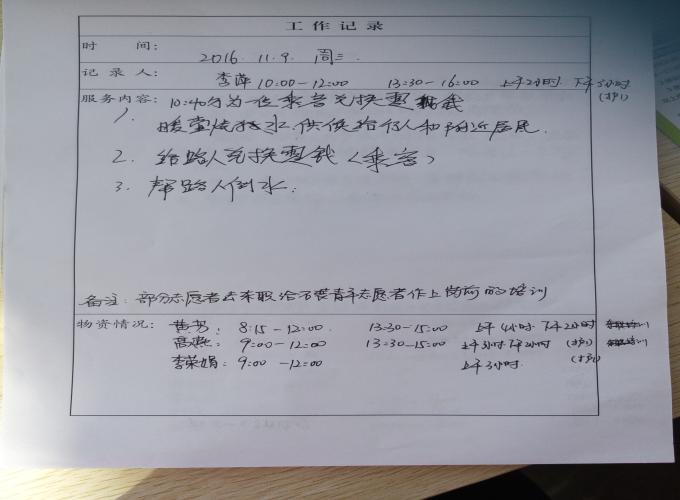 工作记录
时 间： 2016. 11. 9. 周三.
记录人： 李萍 10:00-12:00 13:30-16:00 上午2小时. 下午3小时
服务内容： 10:40分为一位乘客兑换零钱
1、 烧热水.供侯给行人和附近居民.
2. 给路人兑换零钱（乘客）
3. 帮路人倒水.
备注: 部分志愿者去 青年志愿者作上岗前的培训
物资情况： 8:15-12:00 13:30-15:00 上午4小时 下午2小时
高燕: 9:00-12:00 13:30-15:00 上午3小时 下午2小时
李荣娟: 9:00-12:00 上午3小时.